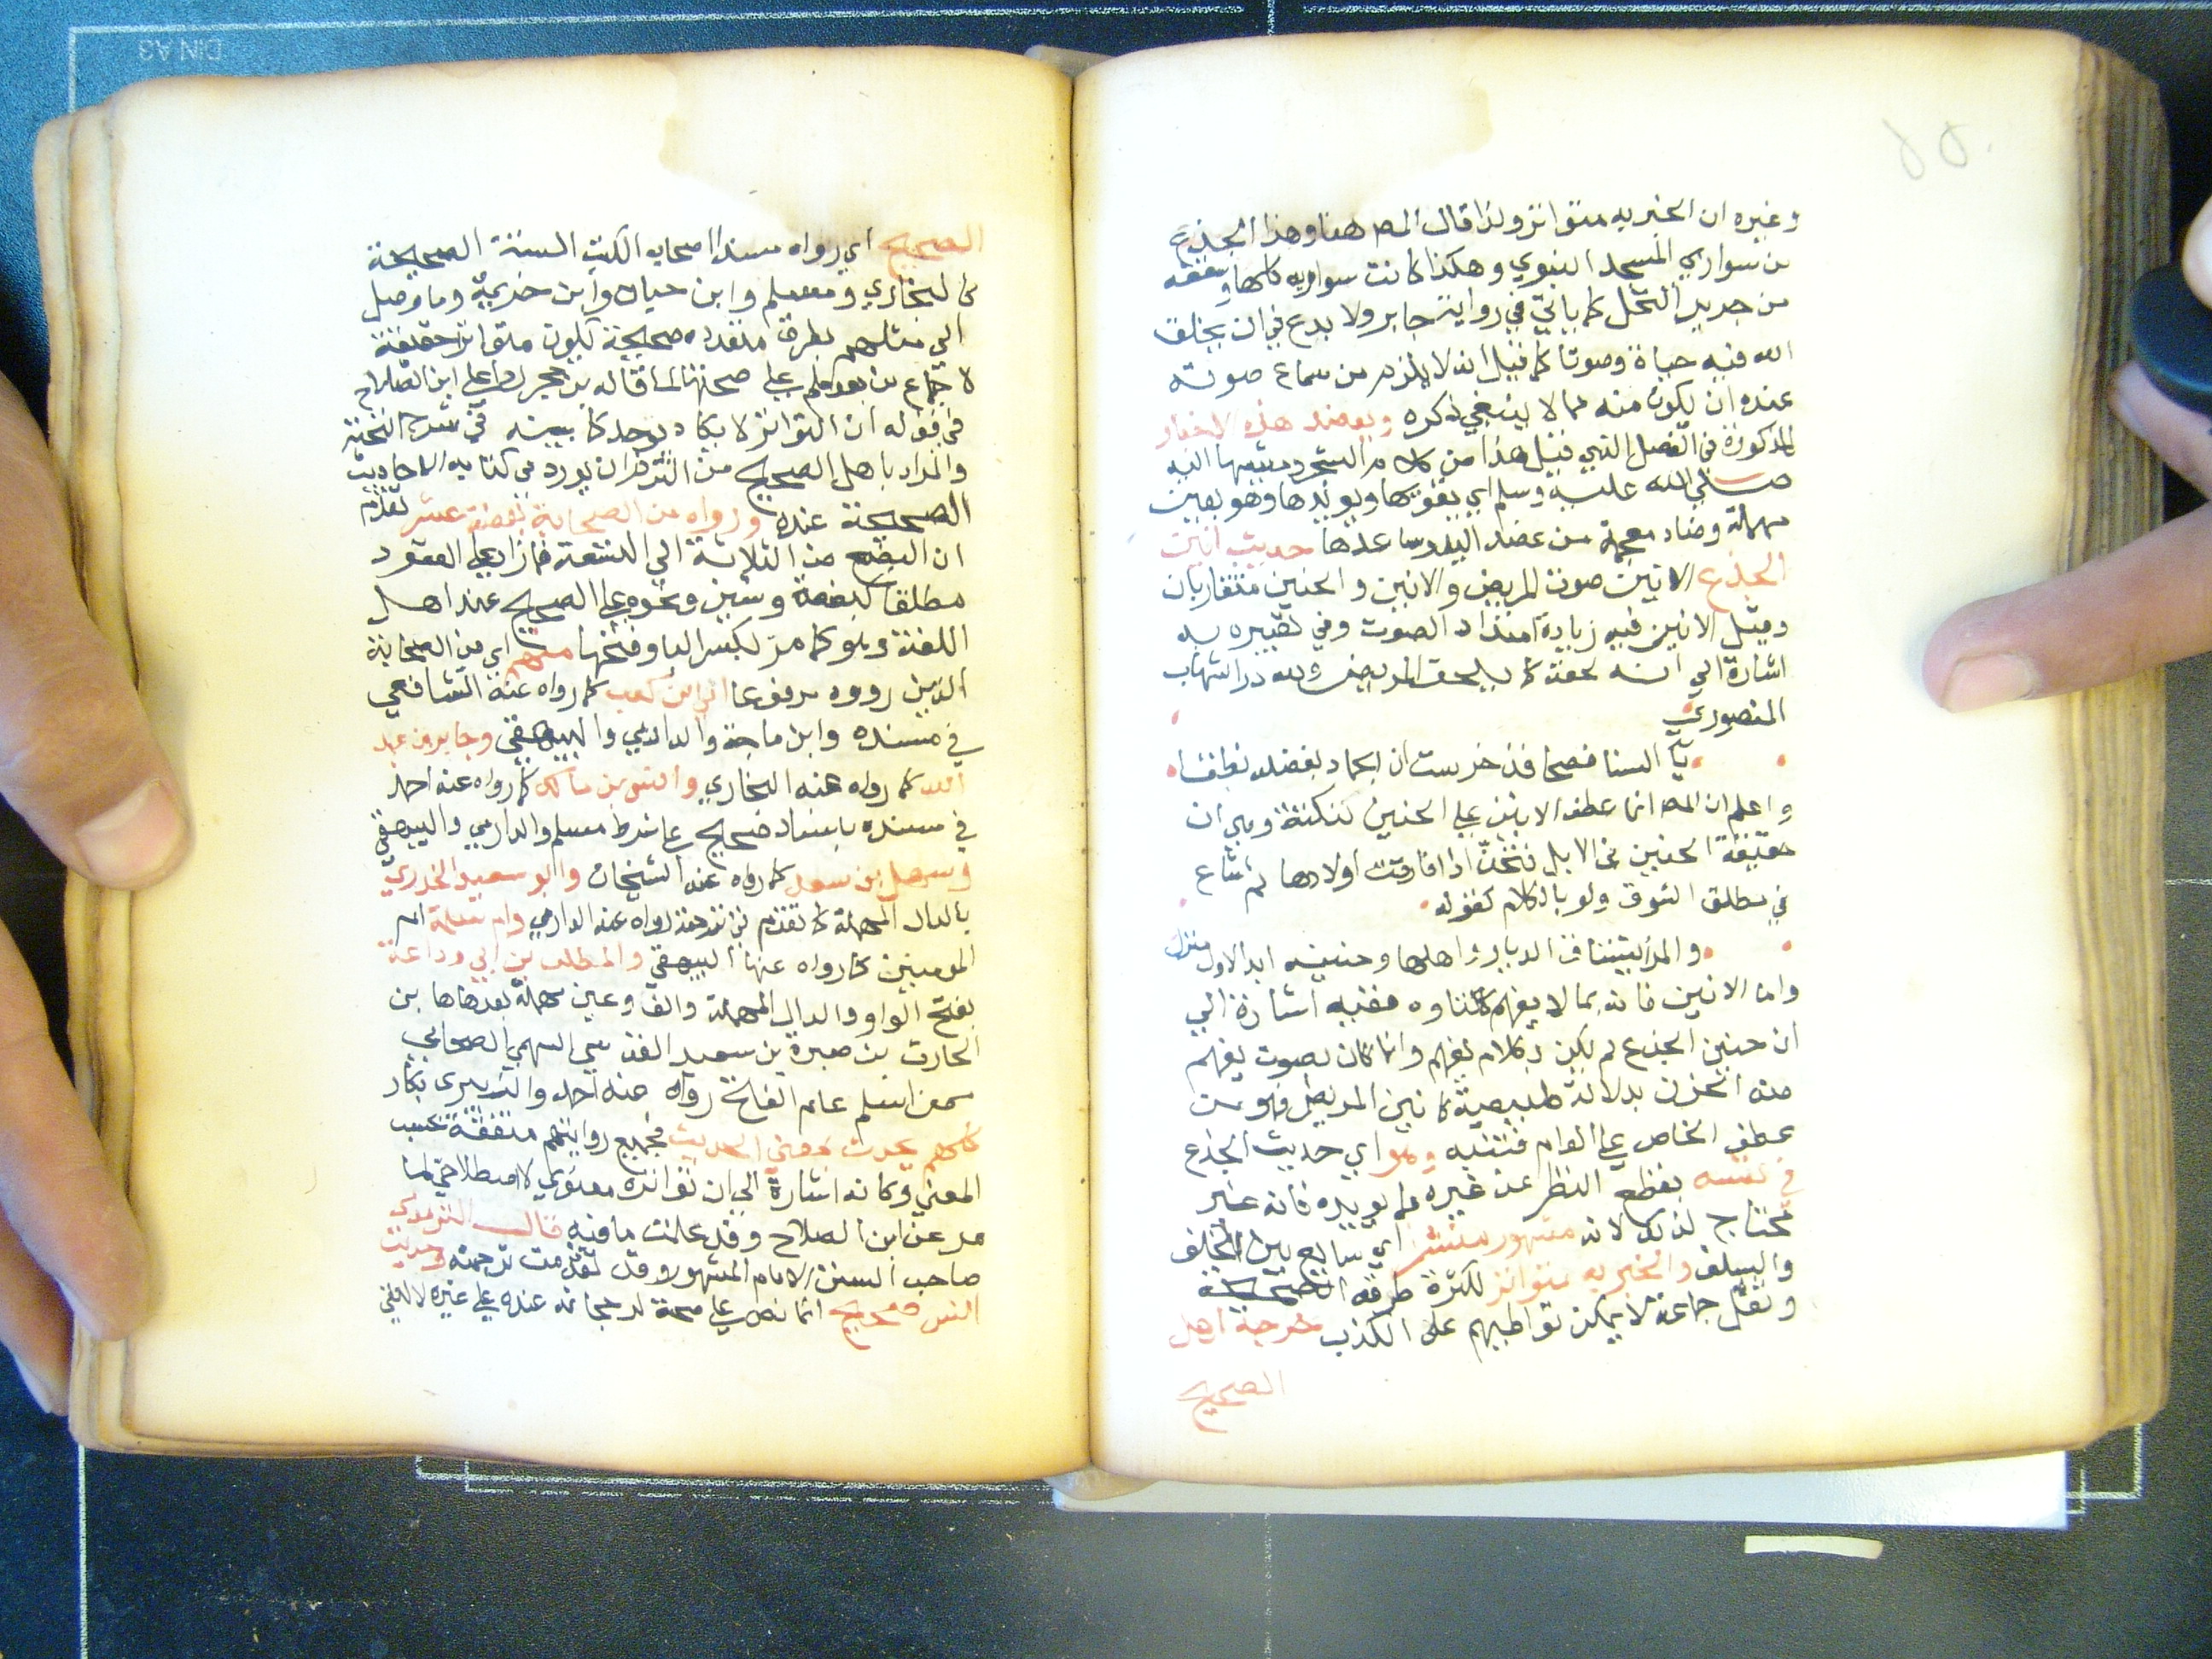 وغيره ان الخبر به متواتر ولذا قال المص هنا وهذا الجذع
من سواري المسجد النبوي وهكذا كانت سواريه كلها وسقفه
من جريد النخل كما ياتي في رواية جابر ولا بدع في ان يخلق
الله فيه حياة وصوتا كما قيل انه لا يلزم من سماع صوته
عنده ان يكون منه مما لا ينبغي ذكره ويعضد هذه الاخبار
المذكورة في الفصل الذي قبل هذا من كلام الشجر ومشيها اليه
صلي الله عليه وسلم اي يقويها ويويدها وهو بعين
مهملة وضاد معجمة من عضد اليد وساعدها حديث انين
الجذع الانين صوت المريض والانين والحنين متقاربان
وقيل الانين فيه زيادة امتداد الصوت وفي تعبيره به
اشارة الي انه لحقه ما يلحق المريض ولله در الشهاب
المنصوري
واعلم ان المص انما عطف الانين علي الحنين لنكتة وهي ان
حقيقة الحنين في الابل تتحنن اذا فارقت اولادها ثم شاع
في مطلق الشوق ولو بالكلام كقوله
والمرء يشتاق الديار واهلها وحنينه ابدا لاول منزل
واما الانين فانه بما لا يفهم كتاوه ففيه اشارة الي
ان حنين الجذع لم يكن بكلام يفهم وانما كان بصوت يفهم
منه الحزن بدلالة طبيعية كانين المريض فهو من
عطف الخاص علي العام فتنبه وهو اي حديث الجذع
في نفسه بقطع النظر عن غيره مما يويده فانه غير
محتاج لذلك لانه مشهور منتشر اي شايع بين الخلف
والسلف والخبر به متواتر لكثرة طرقه الصحيحة
ونقل جماعة لا يمكن تواطيهم على الكذب خرجه اهل
الصحيح
الصحيح اي رواه مسندا اصحاب الكتب الستة الصحيحة
كالبخاري ومسلم وابن حبان وابن خزيمة وما وصل
الي مثلهم بطرق متعدده صحيحة يكون متواترا حقيقة
لاجماع من بعدهم علي صحتها لما قاله بن حجر رادا علي ابن الصلاح
في قوله ان التواتر لا يكاد يوجد كما بينه في شرح النخبة
والمراد باهل الصحيح من التزم ان يورد في كتابه الاحاديث
الصحيحة عنده ورواه من الصحابة بضعة عشر تقدم
ان البضع من الثلاثة الي التسعة فما زاد علي العقود
مطلقا كبضعة وستين ونحوه علي الصحيح عند اهل
اللغة وهو كما مر بكسر البا وفتحها منهم اي من الصحابة
الذين رووه مرفوعا ابي ابن كعب كما رواه عنه الشافعي
في مسنده وابن ماجة والدارمي والبيهقي وجابر بن عبد
الله كما رواه عنه البخاري وانس بن مالك كما رواه عنه احمد
في مسنده باسناد صحيح علي شرط مسلم والدارمي والبيهقي
وسهل بن سعد كما رواه عنه الشيخان وابو سعيد الخدري
بالدال المهملة كما تقدم في ترجمته رواه عنه الدارمي وام سلمة ام
المومنين كما رواه عنها البيهقي والمطلب بن ابي وداعة
بفتح الواو والدال المهملة والف وعين مهملة بعدها ها بن
الحارث بن صبرة بن سعيد القرشي السهمي الصحابي
ممن اسلم عام الفتح رواه عنه احمد والزبير بن بكار
كلهم يحدث بمعني الحديث فجميع رواياتهم متفقة بحسب
المعني وكانه اشارة الي ان تواتره معنوي لا اصطلاحي لما
مر عن ابن الصلاح وقد علمت ما فيه قال الترمذي
صاحب السنن الامام المشهور وقد تقدمت ترجمته وحديث
انس صحيح انما نص علي صحة لرجحانه عنده علي غيره لا لنفي